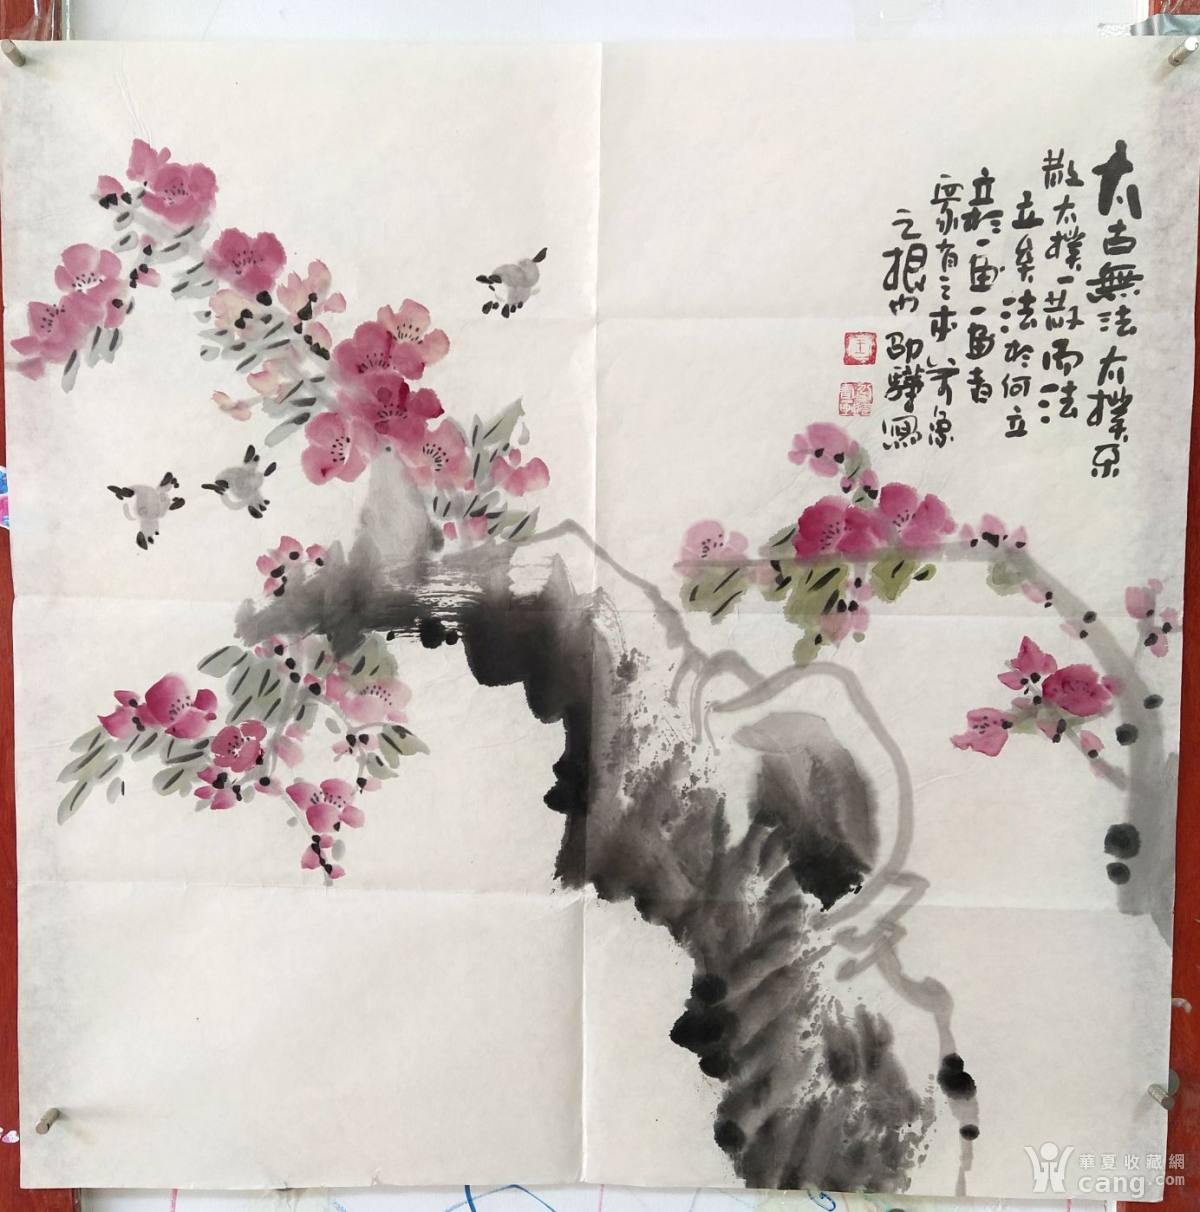 太古無法太撲不
散太撲一散而法
立矣法於何立
立於一畫一畫者
衆有之本萬象
之根也邵驊寫
華夏收藏網
cang.com